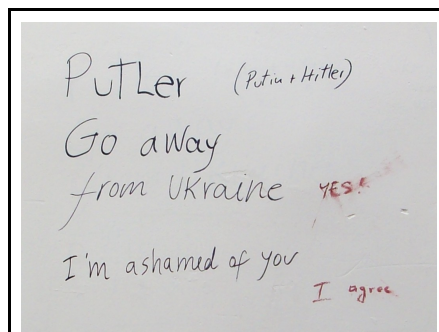 PUTLer (Putin + Hitler)
Go away
from UKraine YES!
I'm ashamed of you
I agree